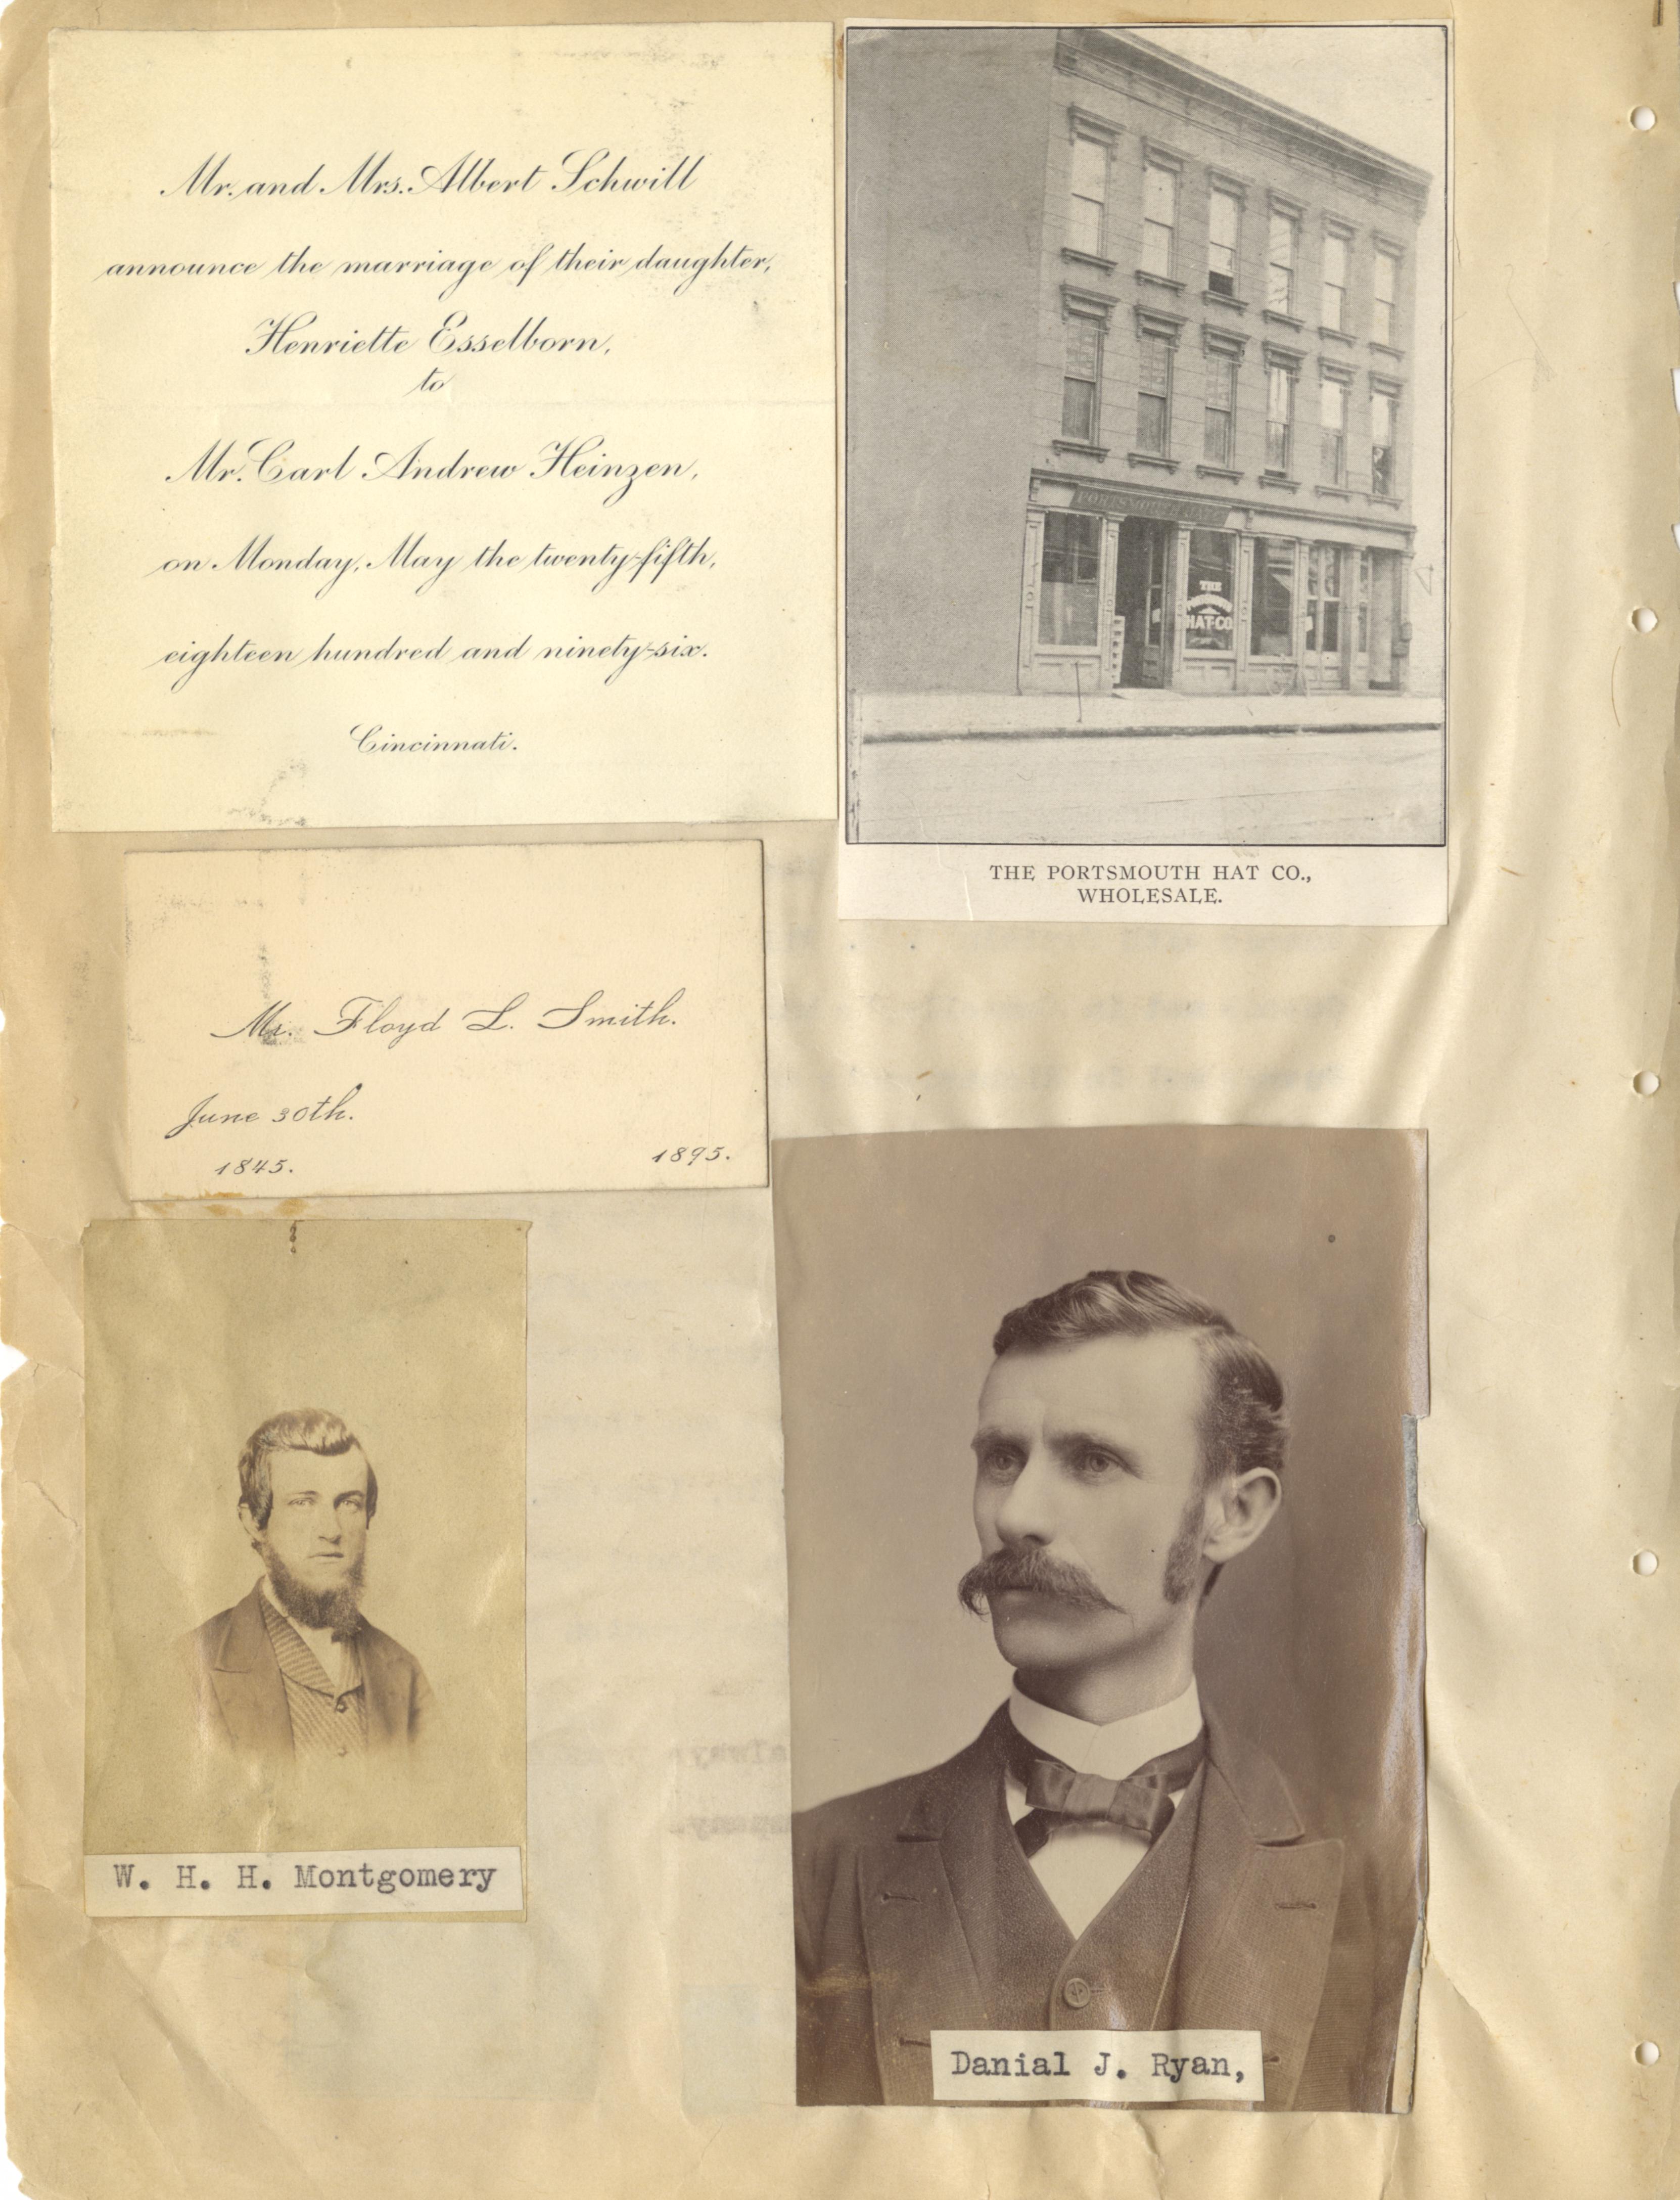 Mr. and Mrs. Albert Schwill
announce the marriage of their daughter,
Henriette Esselborn,
to
Mr. Carl Andrew Heinzen,
on Monday, May the twenty-fifth,
eighteen hundred and ninety-six.
Cincinnati.
PORTSMOUTH HAT
THE
HAT CO
THE PORTSMOUTH HAT CO.,
WHOLESALE.
Mr. Floyd L. Smith.
June 30th.
1845. 1895.
W. H. H. Montgomery
Danial J. Ryan,